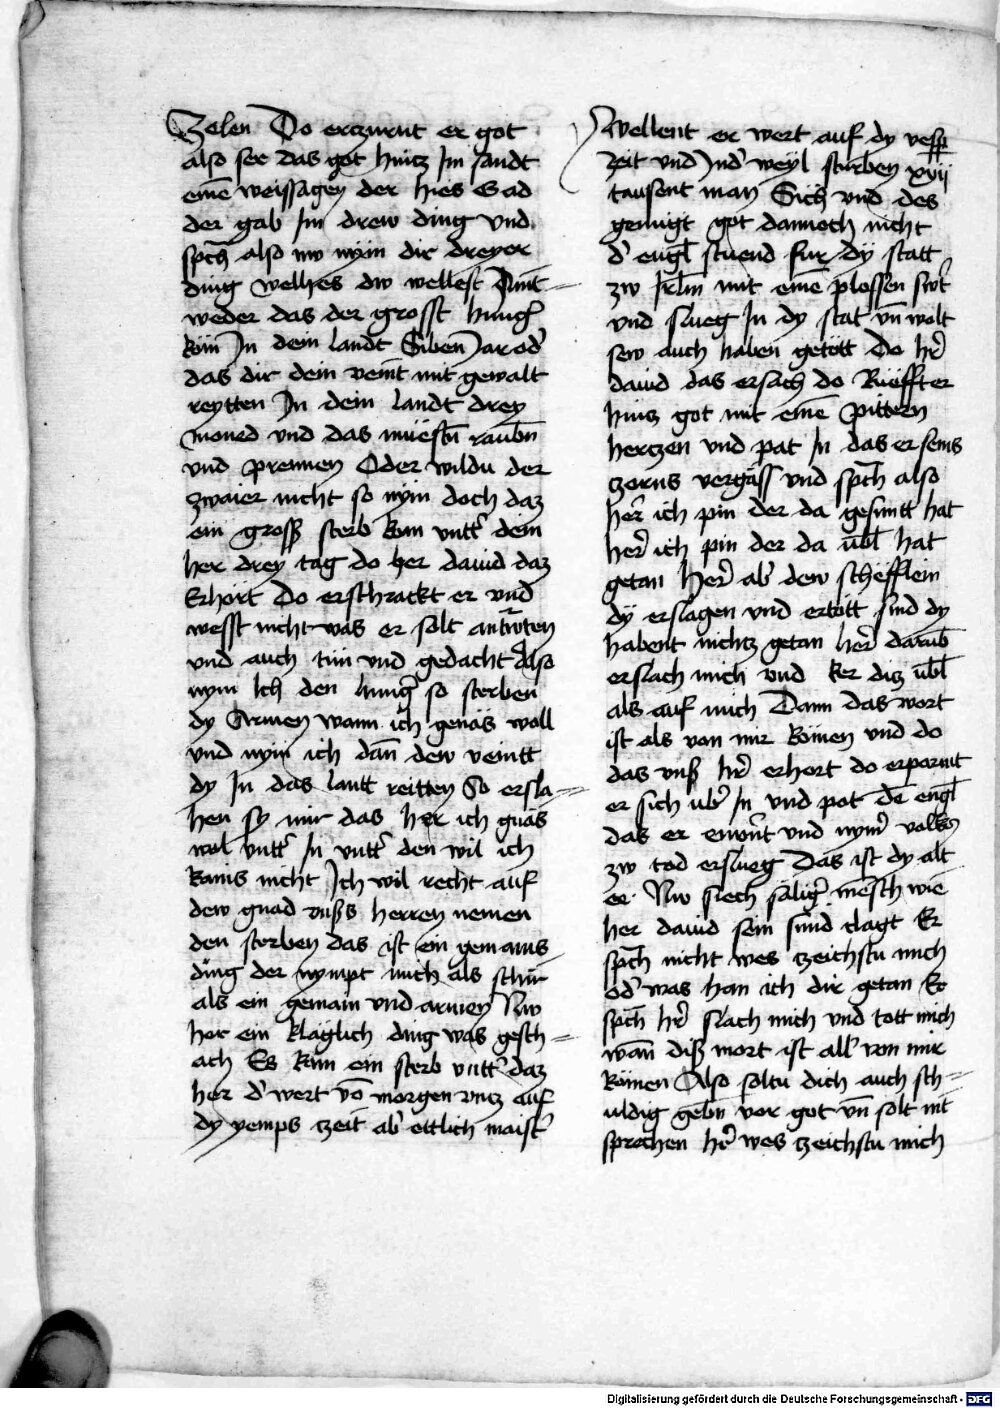 Zelen Do erczurnt er got
also ser das got hincz Im sandt
eine weissagen der hies Gad
der gab Im drew ding Vnd
spch also nw nym dir dreyer
ding welhes dw wellest Aint=
weder das der grosst hung
köm In dem landt Siben Jar od
das dir dem veint mit gewalt
reytten In dein landt drey
moned vnd das müestn raubn
vnd prennen Oder wildu der
zwaier nicht so nym doch daz
ein gross sterb kom vntt dein
her drey tag do her dauid daz
Erhört Do erschrackt er vnd
wesst nicht was er solt antwrten
vnd auch tün vnd gedacht Also
nym Ich den hung so sterben
dy Armen wann ich genäs woll
vnd nym ich dan dew veintt
dy In das lantt reitten So ersla=
hen sy mir das her ich gnäs
wol vntt In vntt den wil ich
kains nicht Ich wil recht auf
dew gnad vnsss herren nemen
den sterben das ist ein gemains
ding der nympt mich als schir
als ein gemain vnd armen Nw
hor ein klaglich ding was gesch=
ach Es kam ein sterb vntt daz
her d wert vo morgen vncz auf
dy yemps zeit ab ettlich maist
Wellent er wert auf dy vesp
Zeit vnd Ind weyl sturben xxiij
tausent man Sich vnd des
genugt got dannoch nicht
d engl stuend fur dy statt
zw Irlm mit eine plossen swt
vnd slueg In dy stat vn wolt
sew auch haben getött Do hr
dauid das ersach do Rüefft er
hincz got mit eine pittern
herczen vnd pat In das er seins
zorns vergäss vnd spch also
her ich pin der da gesuntt hat
her ich pin der da übl hat
getan her ab dew schefflein
dy erslagen vnd ertött sind dy
habent nichtz getan her darub
erslach mich vnd ker diz übl
als auf mich Dann das wort
ist als von mir kömen vnd do
das vnss hr erhort do erparmt
er sich üb In vnd pot de engl
das er erwnt vnd nym volks
zw tod erslueg Das ist dy alt
ee Nw siech sälig mesch wie
her dauid sein sünd clagt Er
spch nicht wes zeichstu mich
od was han ich dir getan Er
spch hr slach mich vnd tott mich
wan diss mort ist all von mir
kömen Also soltu dich auch sch=
uldig gebn vor got vn solt nit
sprechen hr wes zeichstu mich
Digitalisierung gefördert durch die Deutsche Forschungsgemeinschaft - DFG